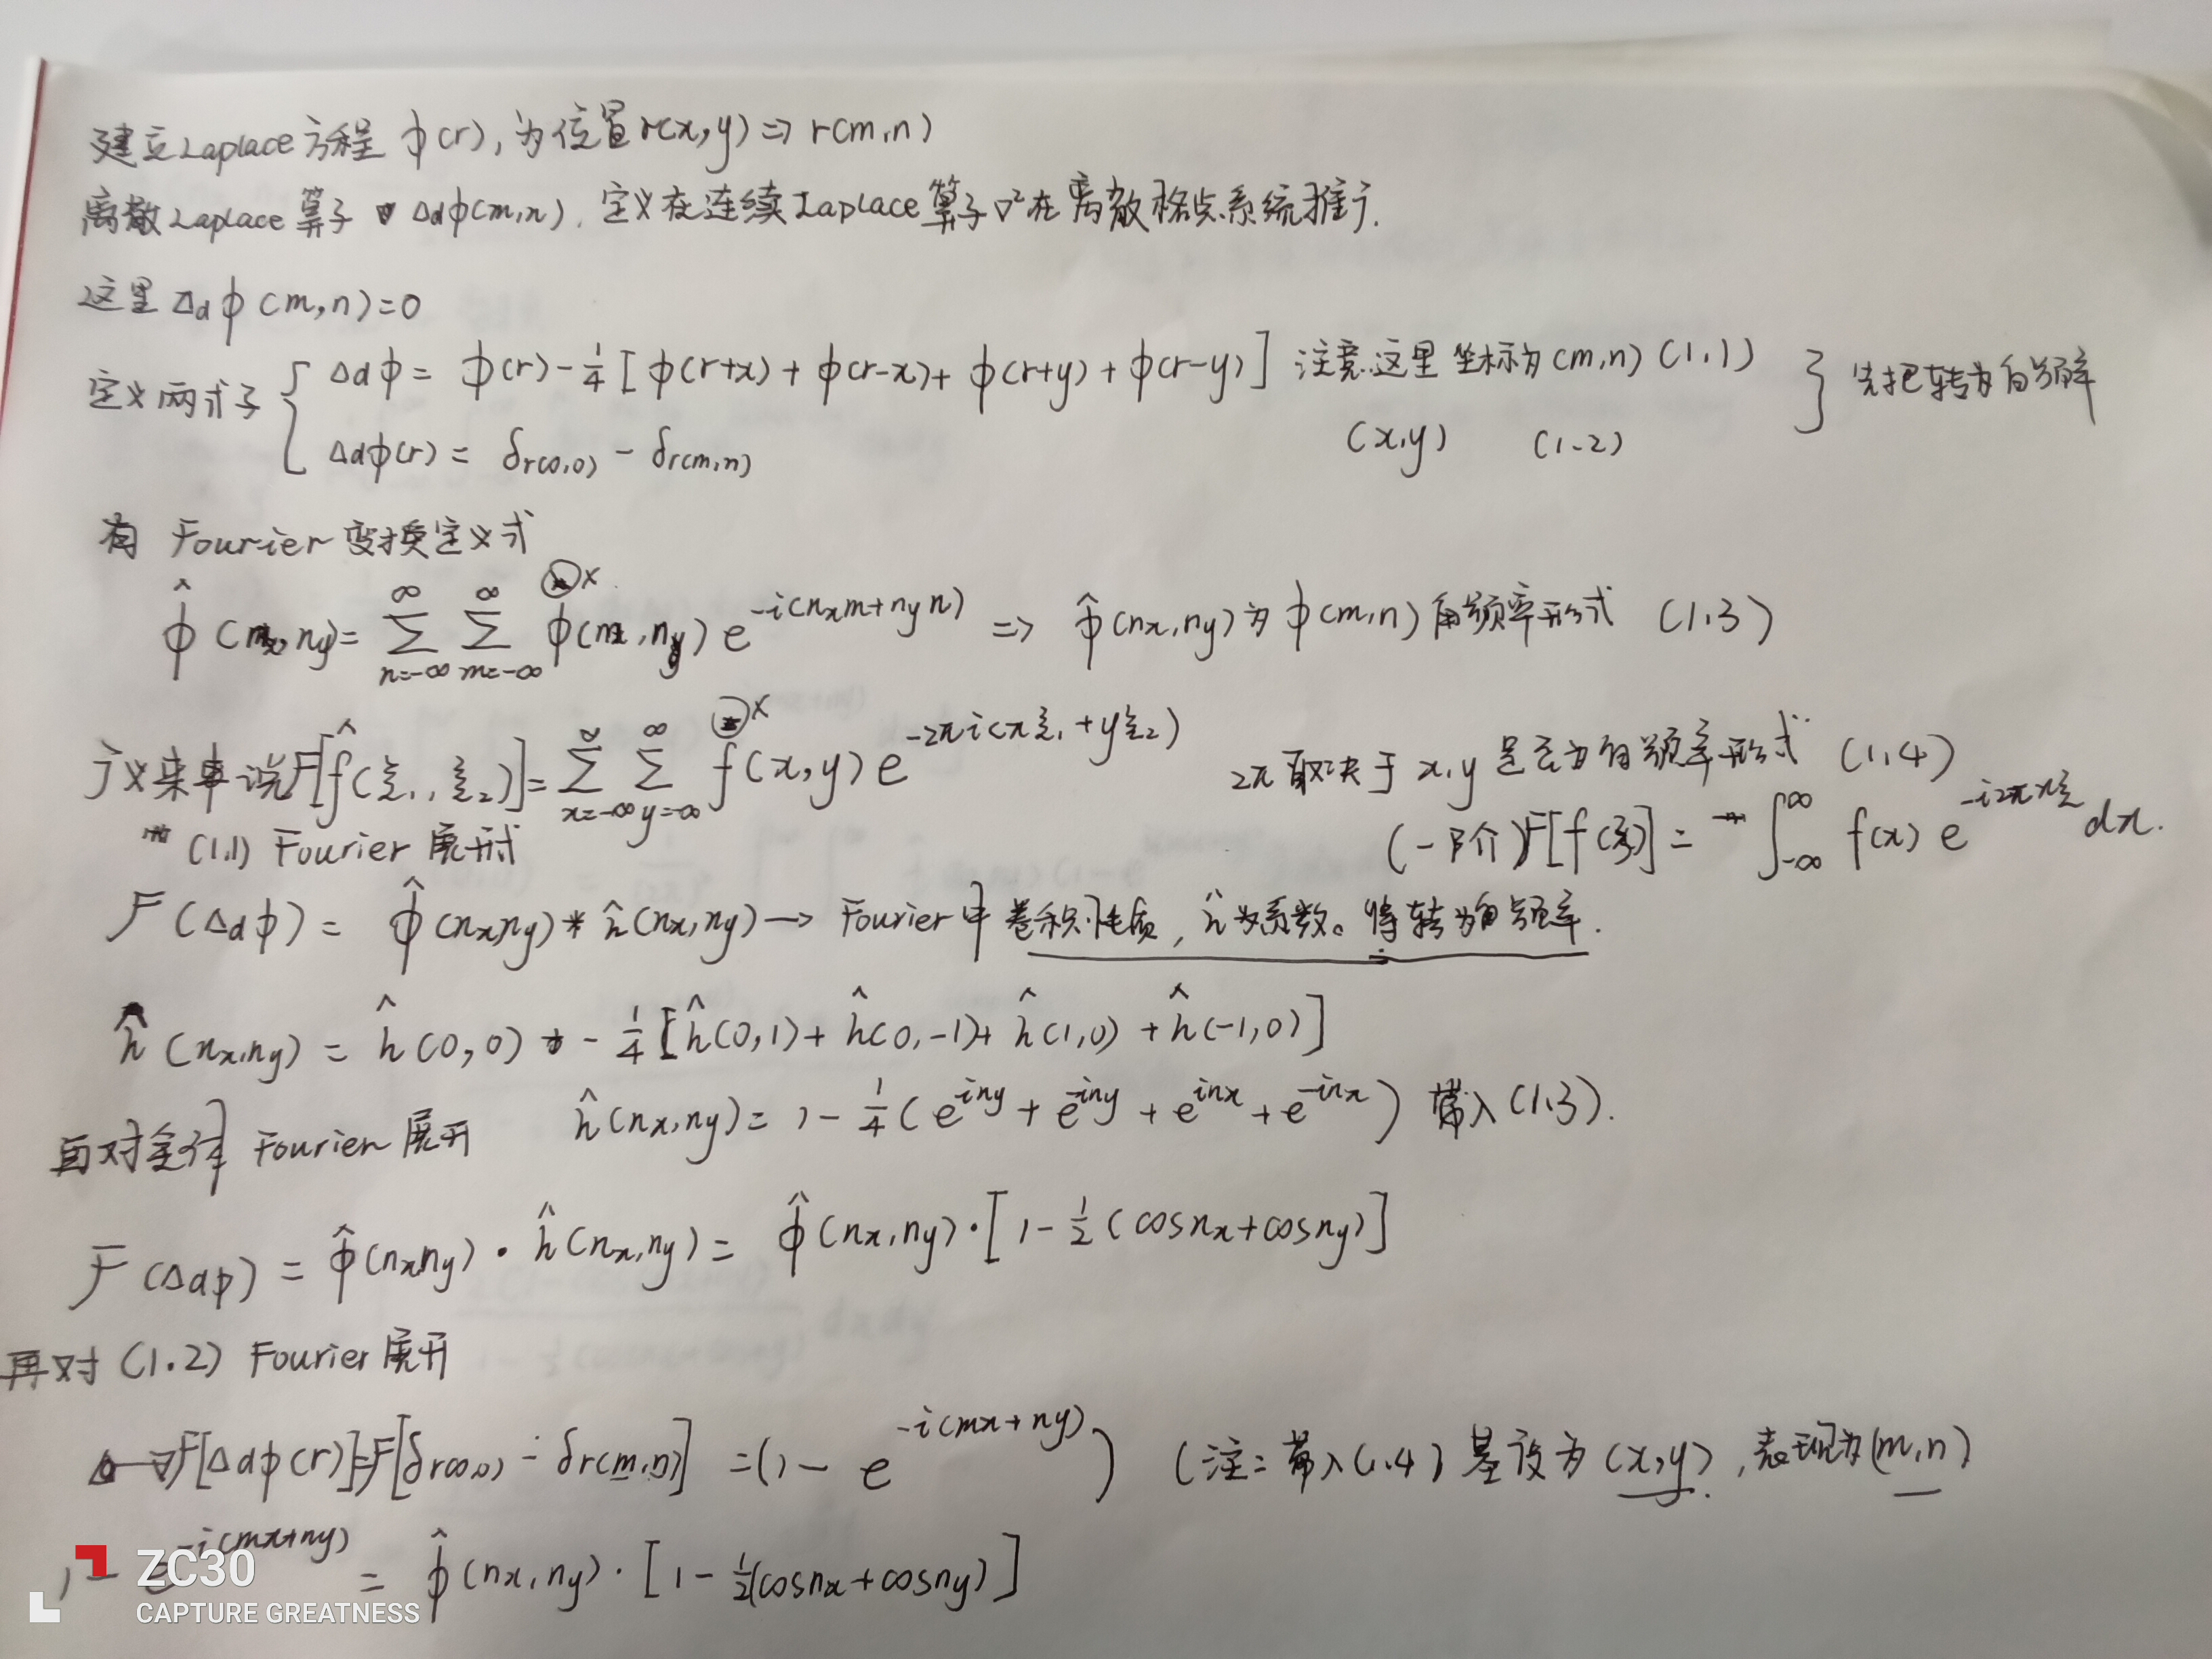 建立Laplace方程 ϕ(r), 为位置r(x,y)⇒r(m,n)
离散Laplace算子 Δdϕ(m,n). 定义在连续Laplace算子∇²在离散格点系统推广.
这里Δdϕ(m,n)=0
定义两式子 { Δdϕ = ϕ(r)-1/4[ϕ(r+x)+ϕ(r-x)+ϕ(r+y)+ϕ(r-y)] 注意这里坐标为(m,n) (1.1) } 先把转为角频率
Δdϕ(r) = δr(0,0) - δr(m,n) (x,y) (1.2)
有 Fourier变换定义式
ϕ̂(nx,ny)= Σ_{n=-∞}^{∞} Σ_{m=-∞}^{∞} ϕ(m,n) e^{-i(nxm+nyn)} ⇒ ϕ̂(nx,ny)为ϕ(m,n)角频率形式 (1.3)
广义来说F[f̂(ξ1,ξ2)]= Σ_{x=-∞}^{∞} Σ_{y=-∞}^{∞} f(x,y)e^{-2πi(xξ1+yξ2)} 2π取决于x,y是否为角频率形式 (1.4)
(1.1) Fourier展形式 (一阶)F[f(ξ)] = ∫_{-∞}^{∞} f(x) e^{-i2πxξ} dx.
F(Δdϕ) = ϕ̂(nx,ny) * ĥ(nx,ny) → Fourier中卷积性质, ĥ为系数。将转为角频率.
ĥ(nx,ny) = ĥ(0,0) - 1/4[ĥ(0,1)+ĥ(0,-1)+ĥ(1,0)+ĥ(-1,0)]
Fourier展开 ĥ(nx,ny)= 1-1/4(e^{iny}+e^{-iny}+e^{inx}+e^{-inx})带入(1.3).
F(Δdϕ) = ϕ̂(nxny)·ĥ(nx,ny) = ϕ̂(nx,ny)·[1-1/2(cosnx+cosny)]
再对(1.2) Fourier展开
F[Δdϕ(r)]=F[δr(0,0) - δr(m,n)] =(1-e^{-i(mx+ny)}) (注:带入(1.4)基设为(x,y),表现为(m,n)
1-e^{-i(mx+ny)} = ϕ̂(nx,ny)·[1-1/2(cosnx+cosny)]
ZC30
CAPTURE GREATNESS